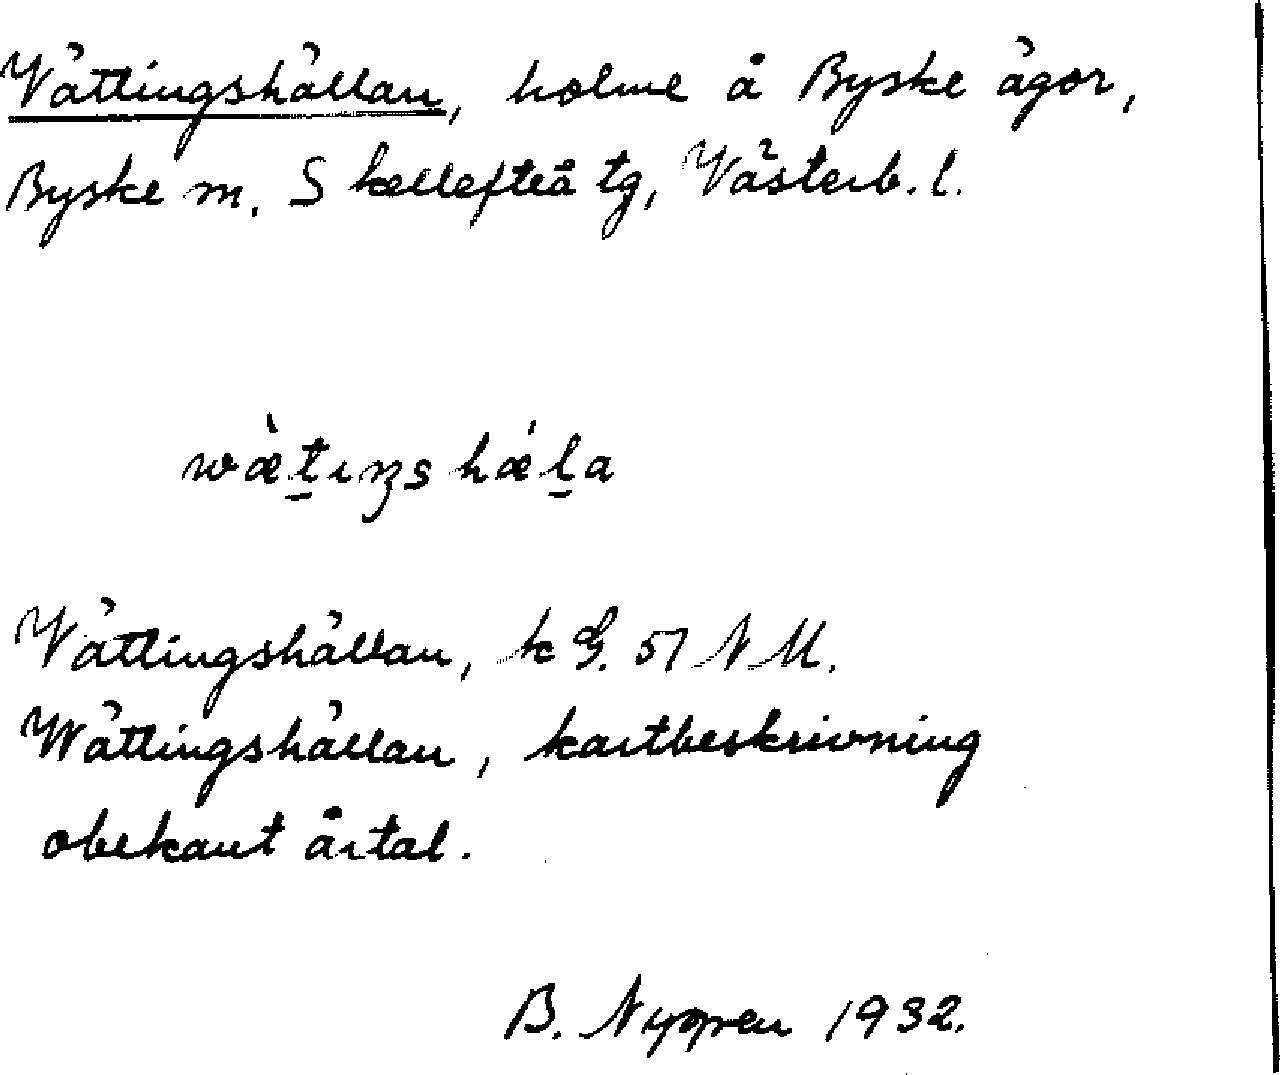 Vättingshällan, holme å Byske ägor,
Byske sn. Skellefteå tg, Västerb. l.
wæ̀t̠ıŋshǽl̠a
Vättingshällan, k G. 57 N M.
Wättingshällan, kartbeskrivning
obekant årtal.
B. Nygren 1932.